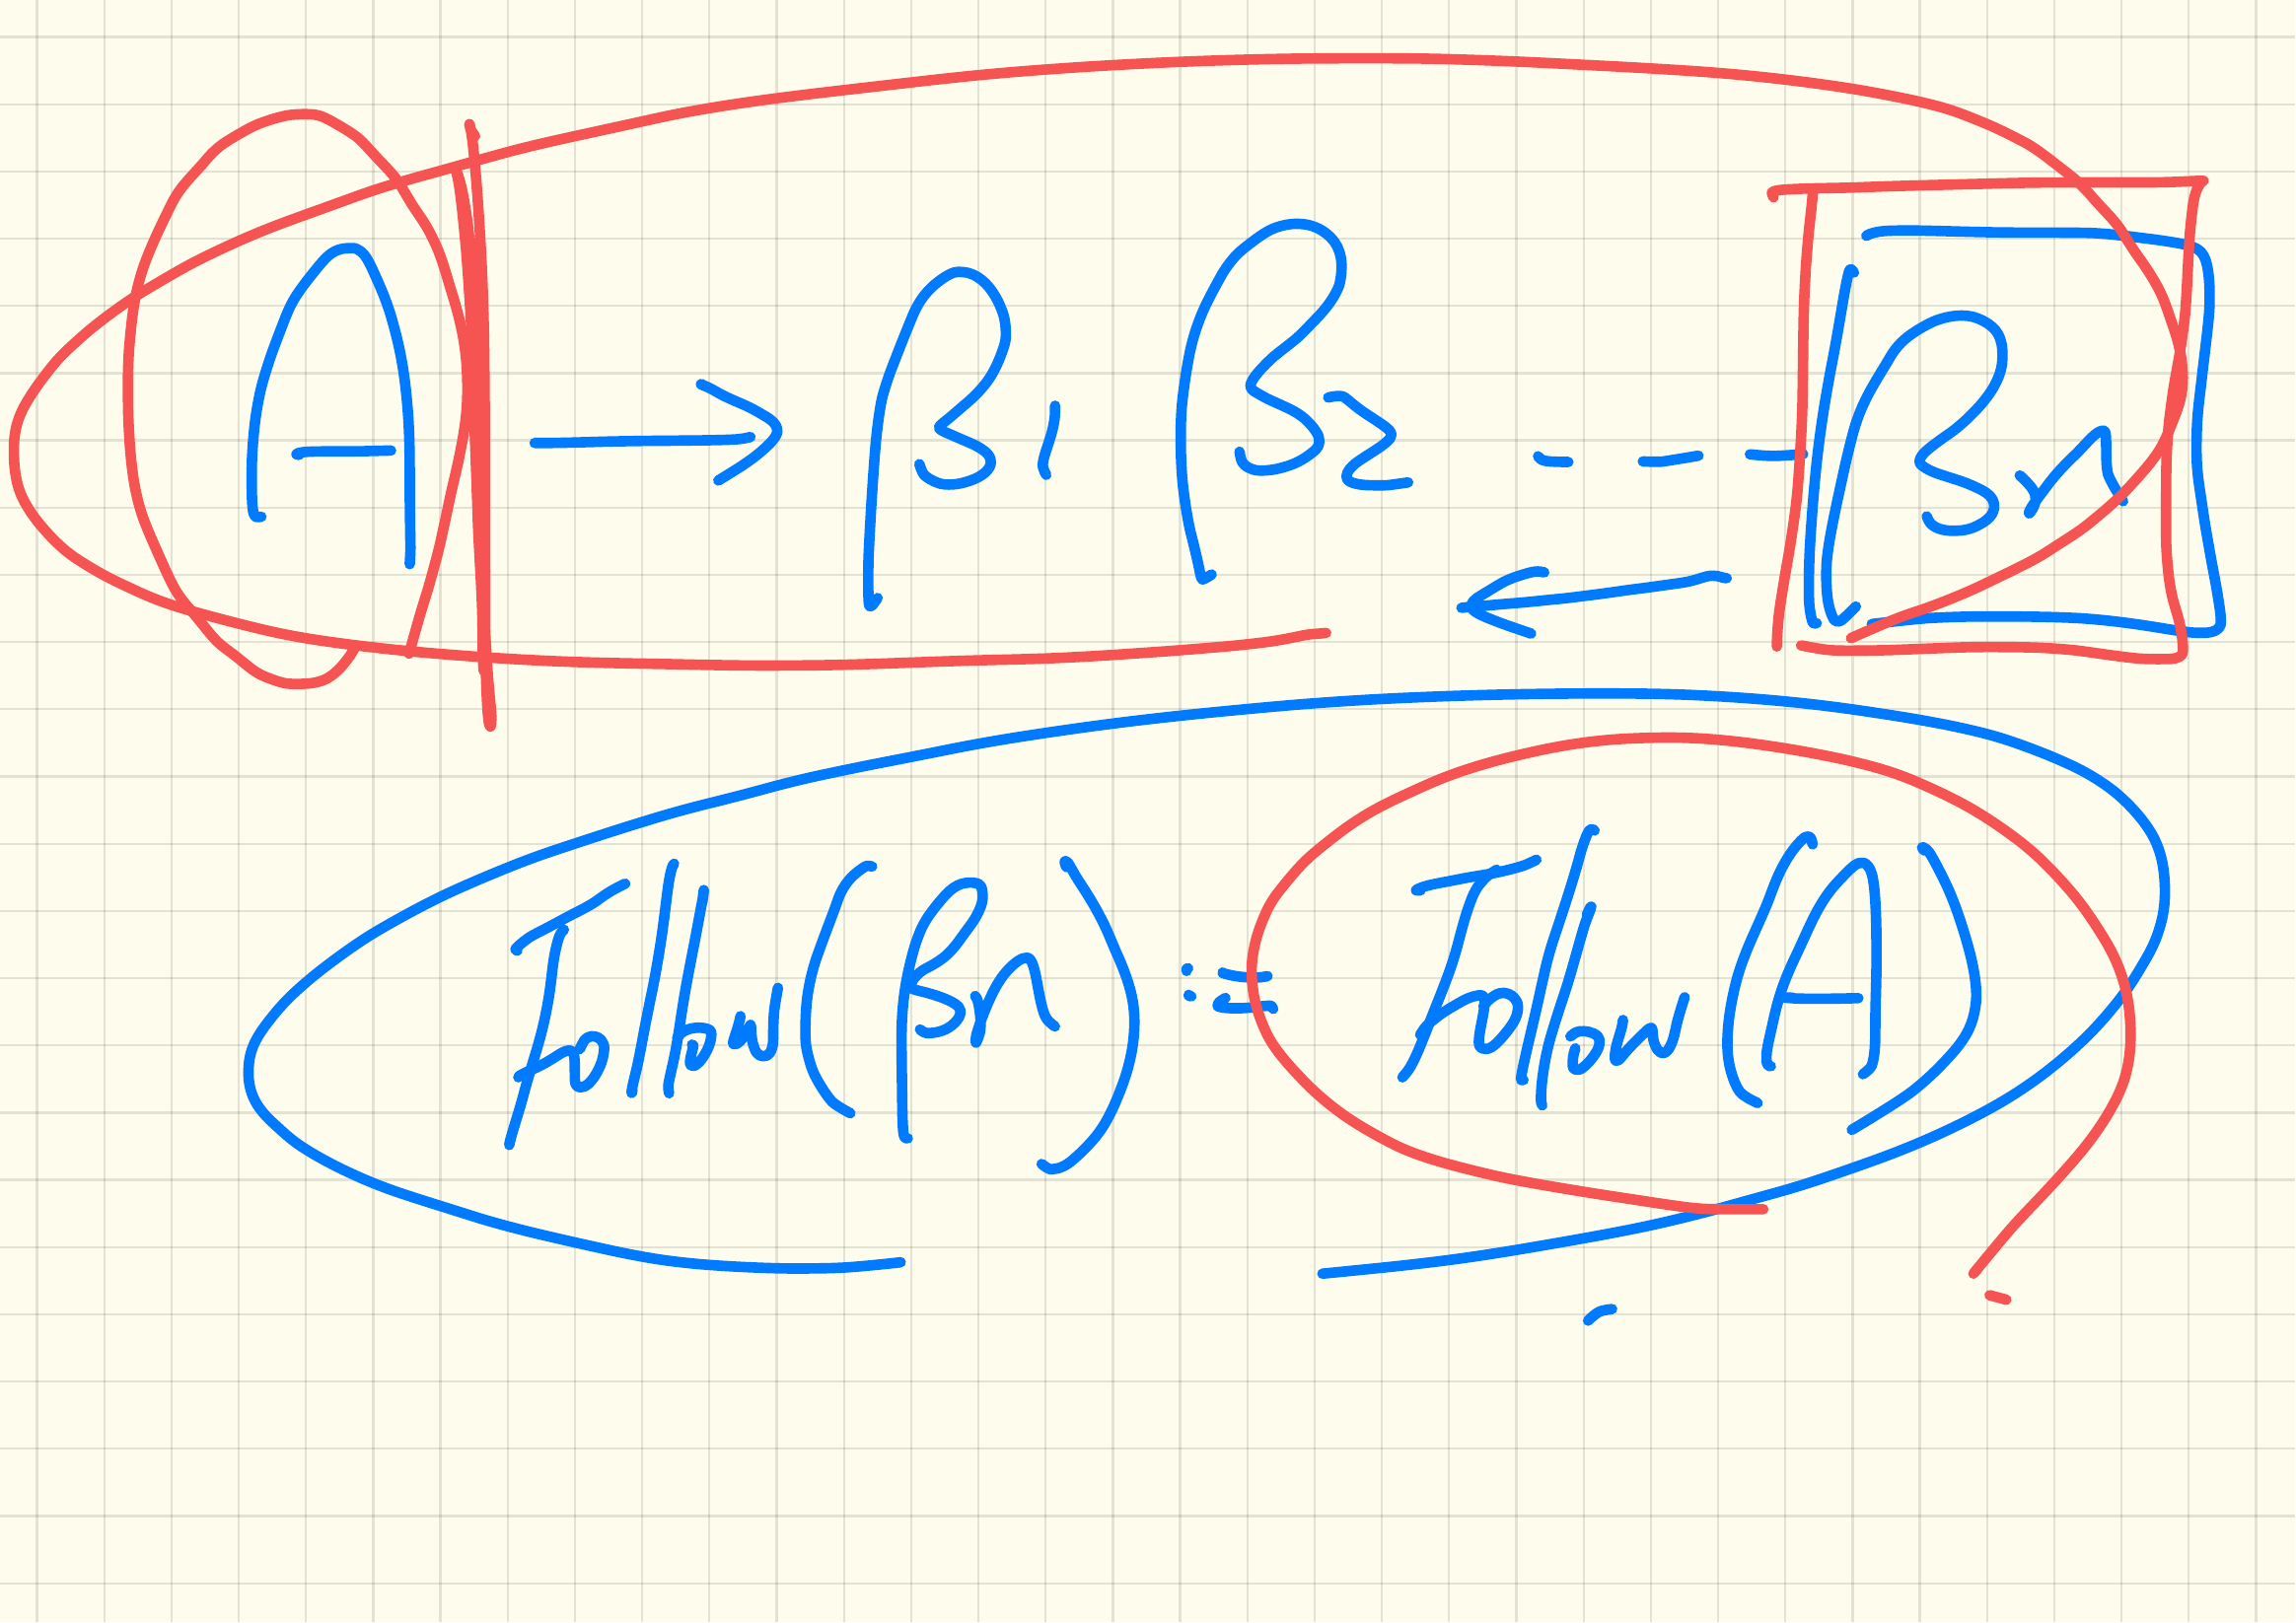 A → β1 β2 - - - βn
Follow(βn) := Follow(A)